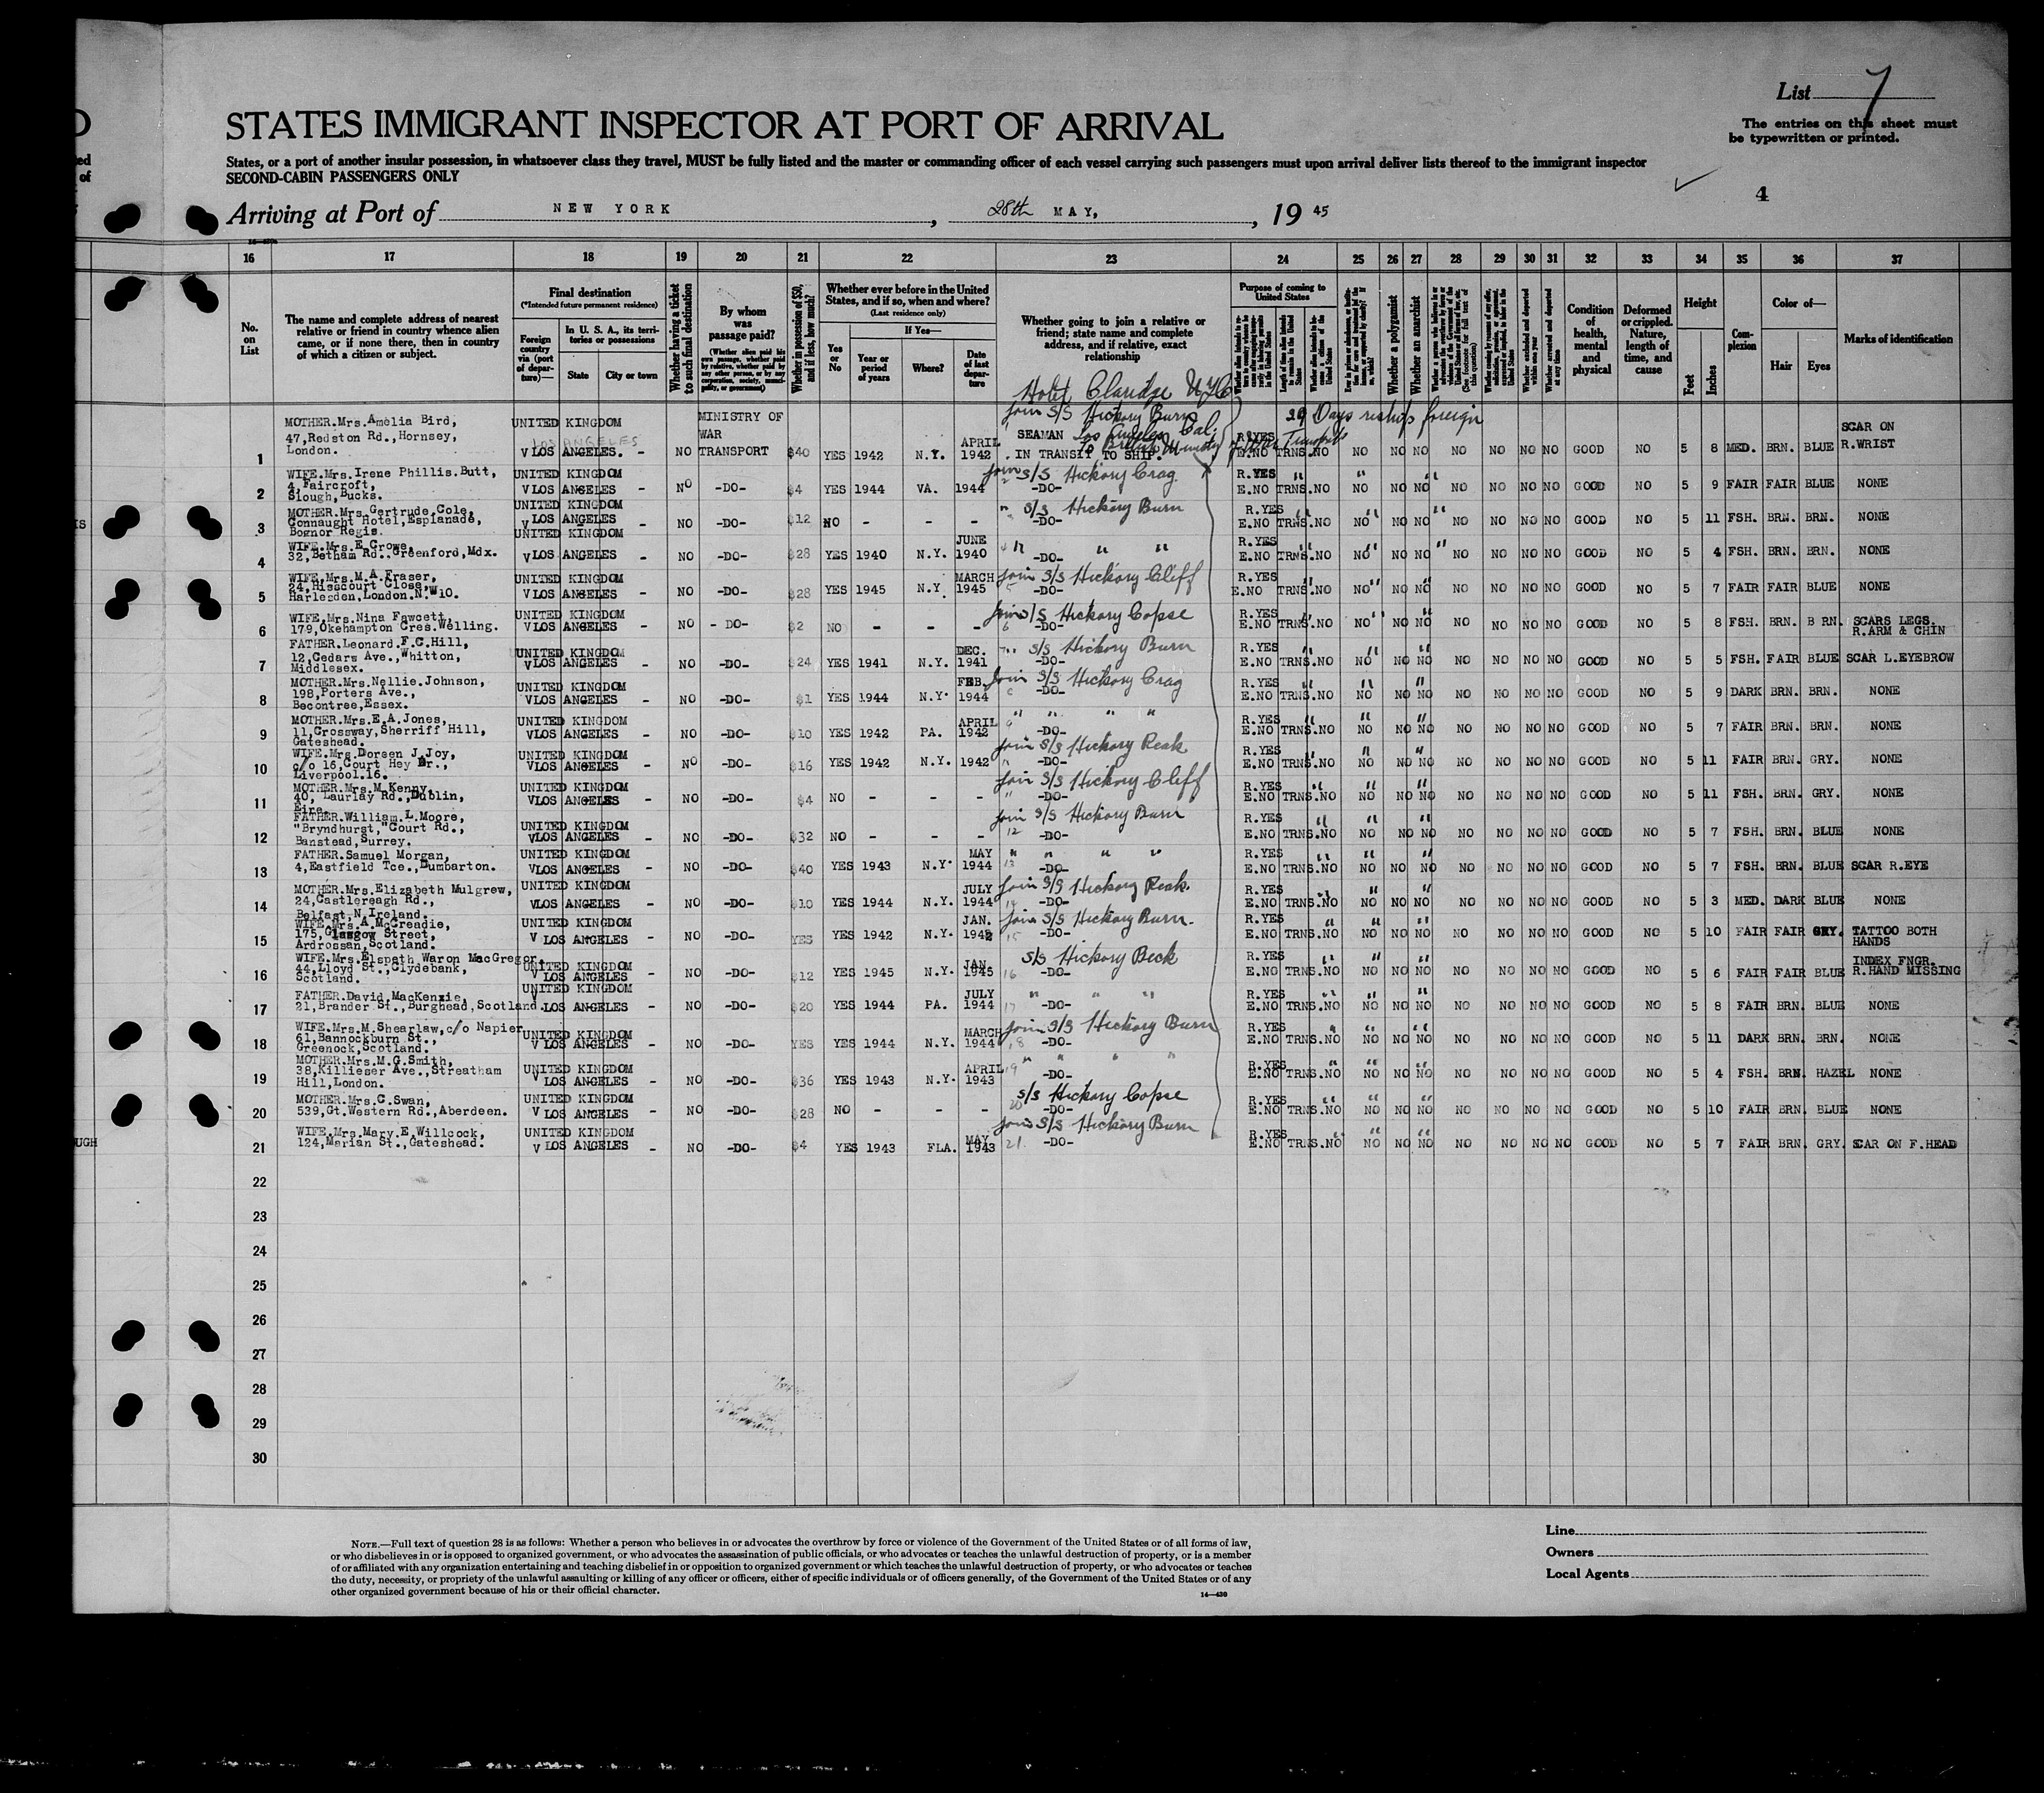 List 7
The entries on this sheet must
be typewritten or printed.
STATES IMMIGRANT INSPECTOR AT PORT OF ARRIVAL
States, or a port of another insular possession, in whatsoever class they travel, MUST be fully listed and the master or commanding officer of each vessel carrying such passengers must upon arrival deliver lists thereof to the immigrant inspector
SECOND-CABIN PASSENGERS ONLY
4
Arriving at Port of NEW YORK, 28th MAY, 1945
16 17 18 19 20 21 22 23 24 25 26 27 28 29 30 31 32 33 34 35 36 37
No. on List
The name and complete address of nearest relative or friend in country whence alien came, or if none there, then in country of which a citizen or subject.
Final destination
(*Intended future permanent residence)
Foreign country via (port of departure)—
In U. S. A., its territories or possessions
State City or town
Whether having a ticket to such final destination
By whom was passage paid?
(Whether alien paid his own passage, whether paid by relative, whether paid by any other person, or by any corporation, society, municipality, or government)
Whether in possession of $50, and if less, how much?
Whether ever before in the United States, and if so, when and where?
(Last residence only)
Yes or No
If Yes—
Year or period of years
Where?
Date of last departure
Whether going to join a relative or friend; state name and complete address, and if relative, exact relationship
Purpose of coming to United States
Whether a polygamist
Whether an anarchist
Condition of health, mental and physical
Deformed or crippled. Nature, length of time, and cause
Height
Feet Inches
Complexion
Color of—
Hair Eyes
Marks of identification
Hotel Claridge NYC
join S/S Hickory Burn 29 Days reship foreign
Los Angeles Cal.
1 MOTHER.Mrs.Amelia Bird, 47,Redston Rd.,Hornsey, London. UNITED KINGDOM LOS ANGELES V LOS ANGELES. - NO MINISTRY OF WAR TRANSPORT $40 YES 1942 N.Y. APRIL 1942 SEAMAN IN TRANSIT TO SHIP. R.YES E.NO TRNS.NO NO NO NO NO NO NO NO GOOD NO 5 8 MED. BRN. BLUE SCAR ON R.WRIST
2 WIFE.Mrs.Irene Phillis.Butt, 4,Faircroft, Slough,Bucks. UNITED KINGDOM VLOS ANGELES - NO -DO- $4 YES 1944 VA. 1944 join S/S Hickory Crag -DO- R.YES E.NO TRNS.NO NO NO NO NO NO NO NO GOOD NO 5 9 FAIR FAIR BLUE NONE
3 MOTHER.Mrs.Gertrude Cole, Connaught Hotel,Esplanade, Bognor Regis. UNITED KINGDOM V LOS ANGELES - NO -DO- $12 NO - - - " S/S Hickory Burn -DO- R.YES E.NO TRNS.NO NO NO NO NO NO NO NO GOOD NO 5 11 FSH. BRN. BRN. NONE
4 WIFE.Mrs.E.Crowe, 32,Betham Rd.,Greenford,Mdx. UNITED KINGDOM VLOS ANGELES - NO -DO- $28 YES 1940 N.Y. JUNE 1940 " " " -DO- R.YES E.NO TRNS.NO NO NO NO NO NO NO NO GOOD NO 5 4 FSH. BRN. BRN. NONE
5 WIFE.Mrs.M.A.Fraser, 24,Hisscourt Close, Harlesden,London.N.W10. UNITED KINGDOM VLOS ANGELES - NO -DO- $28 YES 1945 N.Y. MARCH 1945 join S/S Hickory Cliff -DO- R.YES E.NO TRNS.NO NO NO NO NO NO NO NO GOOD NO 5 7 FAIR FAIR BLUE NONE
6 WIFE.Mrs.Nina Fawcett, 179,Okehampton Cres.Welling. UNITED KINGDOM VLOS ANGELES - NO - DO- $2 NO - - - join S/S Hickory Copse -DO- R.YES E.NO TRNS.NO NO NO NO NO NO NO NO GOOD NO 5 8 FSH. BRN. B RN. SCARS LEGS. R.ARM & CHIN
7 FATHER.Leonard.F.C.Hill, 12,Cedars Ave.,Whitton, Middlesex. UNITED KINGDOM VLOS ANGELES - NO -DO- $24 YES 1941 N.Y. DEC. 1941 " S/S Hickory Burn -DO- R.YES E.NO TRNS.NO NO NO NO NO NO NO NO GOOD NO 5 5 FSH. FAIR BLUE SCAR L.EYEBROW
8 MOTHER.Mrs.Nellie.Johnson, 198,Porters Ave., Becontree,Essex. UNITED KINGDOM VLOS ANGELES - NO -DO- $1 YES 1944 N.Y. FEB. 1944 join S/S Hickory Crag -DO- R.YES E.NO TRNS.NO NO NO NO NO NO NO NO GOOD NO 5 9 DARK BRN. BRN. NONE
9 MOTHER.Mrs.E.A.Jones, 11,Crossway,Sherriff Hill, Gateshead. UNITED KINGDOM VLOS ANGELES - NO -DO- $10 YES 1942 PA. APRIL 1942 " " " " -DO- R.YES E.NO TRNS.NO NO NO NO NO NO NO NO GOOD NO 5 7 FAIR BRN. BRN. NONE
10 WIFE.Mrs.Doreen J.Joy, c/o 16,Court Hey Dr., Liverpool.16. UNITED KINGDOM VLOS ANGELES - NO -DO- $16 YES 1942 N.Y. 1942 join S/S Hickory Peak -DO- R.YES E.NO TRNS.NO NO NO NO NO NO NO NO GOOD NO 5 11 FAIR BRN. GRY. NONE
11 MOTHER.Mrs.M.Kenny, 40, Laurlay Rd.,Dublin, Eire. UNITED KINGDOM VLOS ANGELES - NO -DO- $4 NO - - - join S/S Hickory Cliff -DO- R.YES E.NO TRNS.NO NO NO NO NO NO NO NO GOOD NO 5 11 FSH. BRN. GRY. NONE
12 FATHER.William.L.Moore, "Bryndhurst,"Court Rd., Banstead,Surrey. UNITED KINGDOM VLOS ANGELES - NO -DO- $32 NO - - - join S/S Hickory Burn 12 -DO- R.YES E.NO TRNS.NO NO NO NO NO NO NO NO GOOD NO 5 7 FSH. BRN. BLUE NONE
13 FATHER.Samuel Morgan, 4,Eastfield Tce.,Dumbarton. UNITED KINGDOM VLOS ANGELES - NO -DO- $40 YES 1943 N.Y. MAY 1944 " " " " 13 -DO- R.YES E.NO TRNS.NO NO NO NO NO NO NO NO GOOD NO 5 7 FSH. BRN. BLUE SCAR R.EYE
14 MOTHER.Mrs.Elizabeth Mulgrew, 24,Castlereagh Rd., Belfast,N.Ireland. UNITED KINGDOM VLOS ANGELES - NO -DO- $10 YES 1944 N.Y. JULY 1944 join S/S Hickory Peak. 14 -DO- R.YES E.NO TRNS.NO NO NO NO NO NO NO NO GOOD NO 5 3 MED. DARK BLUE NONE
15 WIFE.Mrs.A.McCreadie, 175,Glasgow Street, Ardrossan,Scotland. UNITED KINGDOM V LOS ANGELES - NO -DO- YES YES 1942 N.Y. JAN. 1942 join S/S Hickory Burn. 15 -DO- R.YES E.NO TRNS.NO NO NO NO NO NO NO NO GOOD NO 5 10 FAIR FAIR GRY. TATTOO BOTH HANDS
16 WIFE.Mrs.Elspath Waron MacGregor, 44,Lloyd St.,Clydebank, Scotland. UNITED KINGDOM V LOS ANGELES - NO -DO- $12 YES 1945 N.Y. JAN. 1945 S/S Hickory Beck 16 -DO- R.YES E.NO TRNS.NO NO NO NO NO NO NO NO GOOD NO 5 6 FAIR FAIR BLUE INDEX FNGR. R.HAND MISSING
17 FATHER.David.MacKenzie, 21,Brander St.,Burghead,Scotland. UNITED KINGDOM V LOS ANGELES - NO -DO- $20 YES 1944 PA. JULY 1944 " " " 17 -DO- R.YES E.NO TRNS.NO NO NO NO NO NO NO NO GOOD NO 5 8 FAIR BRN. BLUE NONE
18 WIFE.Mrs.M.Shearlaw,c/o Napier, 61,Bannockburn St., Greenock,Scotland. UNITED KINGDOM V LOS ANGELES - NO -DO- YES YES 1944 N.Y. MARCH 1944 join S/S Hickory Burn 18 -DO- R.YES E.NO TRNS.NO NO NO NO NO NO NO NO GOOD NO 5 11 DARK BRN. BRN. NONE
19 MOTHER.Mrs.M.G.Smith, 38,Killieser Ave.,Streatham Hill,London. UNITED KINGDOM V LOS ANGELES - NO -DO- $36 YES 1943 N.Y. APRIL 1943 " " " " 19 -DO- R.YES E.NO TRNS.NO NO NO NO NO NO NO NO GOOD NO 5 4 FSH. BRN. HAZEL NONE
20 MOTHER.Mrs.C.Swan, 539,Gt.Western Rd.,Aberdeen. UNITED KINGDOM V LOS ANGELES - NO -DO- $28 NO - - - S/S Hickory Copse 20 -DO- R.YES E.NO TRNS.NO NO NO NO NO NO NO NO GOOD NO 5 10 FAIR BRN. BLUE NONE
21 WIFE.Mrs.Mary.E.Willcock, 124,Merian St.,Gateshead. UNITED KINGDOM V LOS ANGELES - NO -DO- $4 YES 1943 FLA. MAY 1943 join S/S Hickory Burn 21. -DO- R.YES E.NO TRNS.NO NO NO NO NO NO NO NO GOOD NO 5 7 FAIR BRN. GRY. SCAR ON F.HEAD
22
23
24
25
26
27
28
29
30
NOTE.—Full text of question 28 is as follows: Whether a person who believes in or advocates the overthrow by force or violence of the Government of the United States or of all forms of law,
or who disbelieves in or is opposed to organized government, or who advocates the assassination of public officials, or who advocates or teaches the unlawful destruction of property, or is a member
of or affiliated with any organization entertaining and teaching disbelief in or opposition to organized government or which teaches the unlawful destruction of property, or who advocates or teaches
the duty, necessity, or propriety of the unlawful assaulting or killing of any officer or officers, either of specific individuals or of officers generally, of the Government of the United States or of any
other organized government because of his or their official character.
14—430
Line
Owners
Local Agents